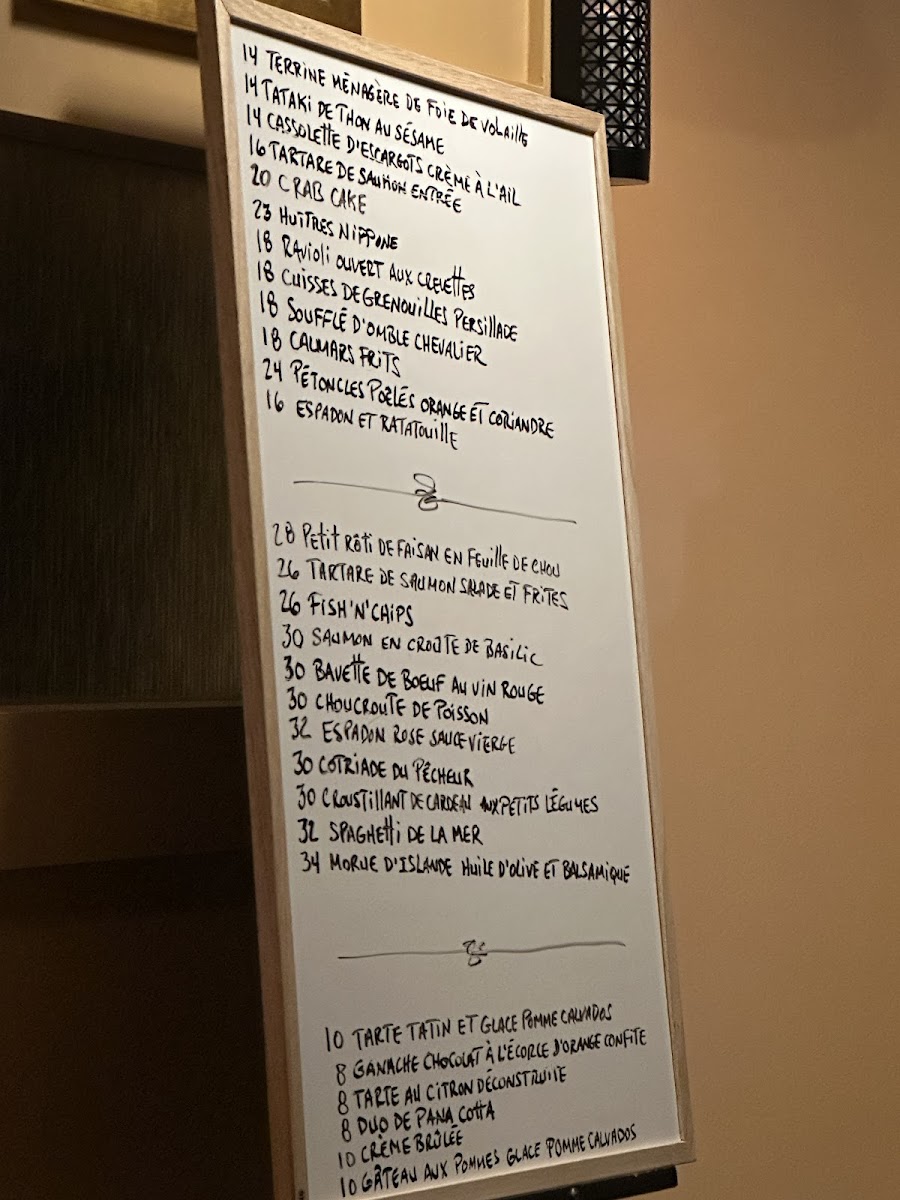 14 TERRINE MÉNAGÈRE DE FOIE DE VOLAILLE
14 TATAKI DE THON AU SÉSAME
14 CASSOLETTE D'ESCARGOTS CRÈME À L'AIL
16 TARTARE DE SAUMON ENTRÉE
20 CRAB CAKE
23 HUÎTRES NIPPONE
18 RAVIOLI OUVERT AUX CREVETTES
18 CUISSES DE GRENOUILLES PERSILLADE
18 SOUFFLÉ D'OMBLE CHEVALIER
18 CALMARS FRITS
24 PÉTONCLES POÊLÉS ORANGE ET CORIANDRE
16 ESPADON ET RATATOUILLE
28 PETIT RÔTI DE FAISAN EN FEUILLE DE CHOU
26 TARTARE DE SAUMON SALADE ET FRITES
26 FISH'N'CHIPS
30 SAUMON EN CROUTE DE BASILIC
30 BAVETTE DE BOEUF AU VIN ROUGE
30 CHOUCROUTE DE POISSON
32 ESPADON ROSE SAUCE VIERGE
30 COTRIADE DU PÊCHEUR
30 CROUSTILLANT DE CARDEAU AUX PETITS LÉGUMES
32 SPAGHETTI DE LA MER
34 MORUE D'ISLANDE HUILE D'OLIVE ET BALSAMIQUE
10 TARTE TATIN ET GLACE POMME CALVADOS
8 GANACHE CHOCOLAT À L'ÉCORCE D'ORANGE CONFITE
8 TARTE AU CITRON DÉCONSTRUITE
8 DUO DE PANA COTTA
10 CRÈME BRÛLÉE
10 GÂTEAU AUX POMMES GLACE POMME CALVADOS